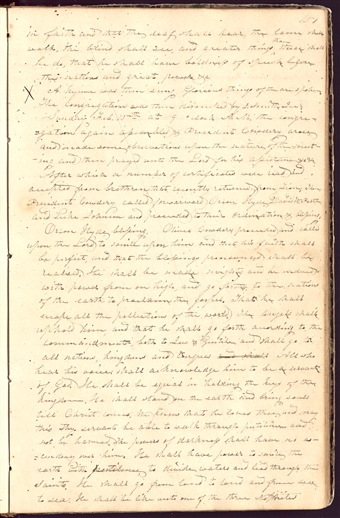 in faith and that the deaf shall hear, the lame shall
walk, the blind shall see and greater things than these shall
he do, that he shall have boldness of speech before
the nations and great power &c
X A hymn was then sung, Glorious things of thee are spoken
The congregation was then dismissed by
Sunday Feb. 15th at 9 o'clock A.M. the congre-
gation again assembled & President Cowdery arose
and made some observations upon the nature of the meet-
ing and then prayed unto the Lord for his assistance
After which a number of certificates were read &
accepted from brethren that recently returned from Zion,
President Cowdery called forward Orson Hyde, David W. Patten
and Luke Johnson and proceeded to their ordination & blessing,
Orson Hyde, blessing. Oliver Cowdery proceeded and called
upon the Lord to smile upon him and that his faith shall
be perfect, and that the blessings pronounced shall be
realized, He shall be made mighty and be endued
with power from on high, and go forth to the nations
of the earth to proclaim the gospel, That he shall
escape all the pollutions of the world, The angels shall
uphold him and that he shall go forth according to the
commandment, both to Jew & Gentile and shall go to
all nations, kingdoms and tongues All who
hear his voice shall acknowledge him to be a servant
of God, He shall be equal in holding the keys of the
kingdom, He shall stand on the earth and bring souls
till Christ comes, We know that he loves thee, O, Lord, may
this thy servant be able to walk through pestilence and
not be harmed, The powers of darkness shall have no as-
cendency over him, He shall have power to smite the
earth with pestilence, to divide waters and lead through the
Saints, He shall go from land to land and from sea
to sea, He shall be like unto one of the three Nephites